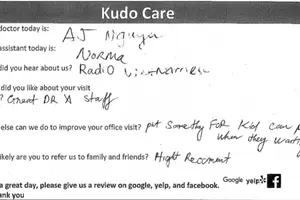 Kudo Care
doctor today is: AJ Nguyen
assistant today is: Norma
did you hear about us? Radio Vietnamese
did you like about your visit
? Great DR & staff
else can we do to improve your office visit? put Somethy FOR Kid can
when they
likely are you to refer us to family and friends? Hight Recoment
a great day, please give us a review on google, yelp, and facebook. Google yelp
nk you